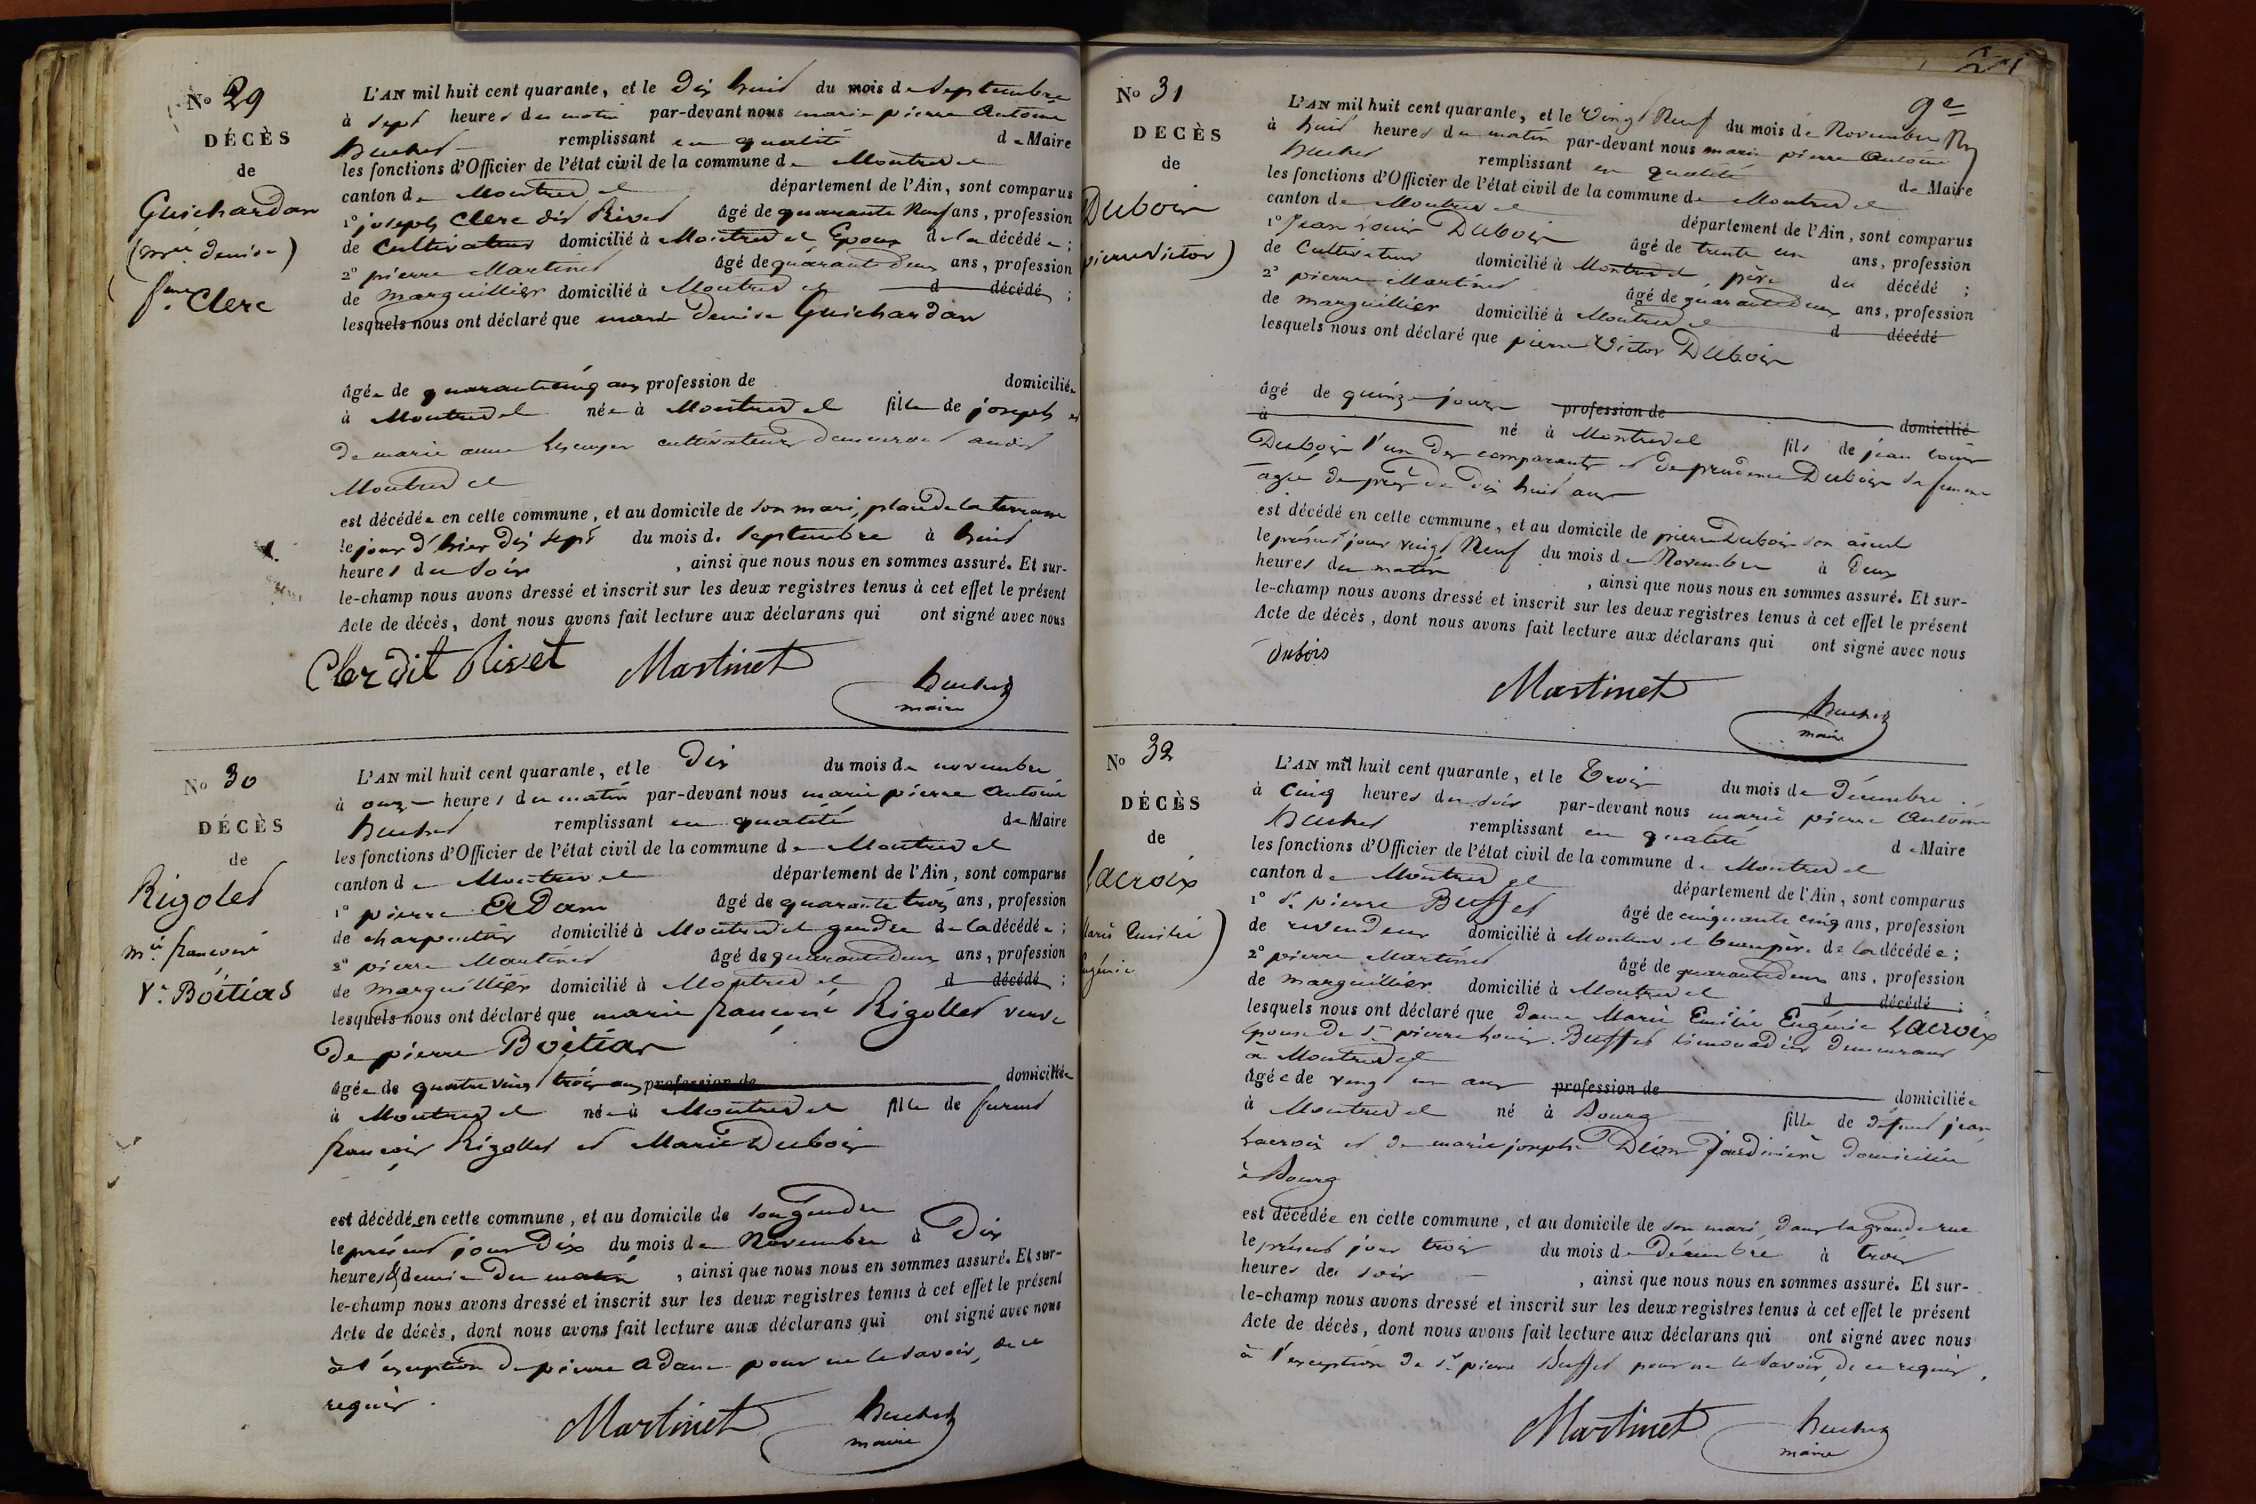 No 29
DÉCÈS
de
Guichardan
(mie denise)
fme Clerc
L'AN mil huit cent quarante, et le Dix huit du mois de Septembre
à sept heures du matin par-devant nous marie pierre Antoine
Huchet remplissant en qualité de Maire
les fonctions d'Officier de l'état civil de la commune de Montrevel
canton de Montrevel département de l'Ain, sont comparus
1o joseph Clerc dit Rivet âgé de quarante Neuf ans, profession
de Cultivateur domicilié à Montrevel Epoux de la décédée;
2o pierre Martinet âgé de quarante deux ans, profession
de marguillier domicilié à Montrevel d décédé;
lesquels nous ont déclaré que marie Denise Guichardan
âgée de quarante cinq ans profession de domiciliée
à Montrevel née à Montrevel fille de joseph et
de marie anne cultivateurs demeurant audit
Montrevel
est décédée en cette commune, et au domicile de son mari, place de la terrasse
le jour d'hier dix sept du mois de Septembre à huit
heures du soir, ainsi que nous nous en sommes assuré. Et sur-
le-champ nous avons dressé et inscrit sur les deux registres tenus à cet effet le présent
Acte de décès, dont nous avons fait lecture aux déclarans qui ont signé avec nous
Clerc dit Rivet Martinet Huchet
maire
No 30
DÉCÈS
de
Rigolet
mie francoise
Ve Boitias
L'AN mil huit cent quarante, et le Dix du mois de novembre
à onze heures du matin par-devant nous marie pierre Antoine
Huchet remplissant en qualité de Maire
les fonctions d'Officier de l'état civil de la commune de Montrevel
canton de Montrevel département de l'Ain, sont comparus
1o pierre Adam âgé de quarante trois ans, profession
de charpentier domicilié à Montrevel gendre de la décédée;
2o pierre Martinet âgé de quarante deux ans, profession
de marguillier domicilié à Montrevel d décédé;
lesquels nous ont déclaré que marie francoise Rigollet veuve
de pierre Boitias
âgée de quatre vingt trois ans profession de domiciliée
à Montrevel née à Montrevel fille de furent
francois Rigollet et Marie Dubois
est décédée en cette commune, et au domicile de son gendre
le présent jour Dix du mois de Novembre à Dix
heures & demie du matin, ainsi que nous nous en sommes assuré. Et sur-
le-champ nous avons dressé et inscrit sur les deux registres tenus à cet effet le présent
Acte de décès, dont nous avons fait lecture aux déclarans qui ont signé avec nous
à l'exception de pierre Adam pour ne le savoir, de ce
requis.
Martinet Huchet
maire
No 31
DECÈS
de
Dubois
pierre Victor)
L'AN mil huit cent quarante, et le Vingt Neuf du mois de Novembre
à huit heures du matin par-devant nous marie pierre Antoine
Huchet remplissant en qualité de Maire
les fonctions d'Officier de l'état civil de la commune de Montrevel
canton de Montrevel département de l'Ain, sont comparus
1o Jean Louis Dubois âgé de trente un ans, profession
de Cultivateur domicilié à Montrevel père du décédé;
2o pierre Martinet âgé de quarante deux ans, profession
de marguillier domicilié à Montrevel d décédé
lesquels nous ont déclaré que pierre Victor Dubois
âgé de quinze jours profession de domicilié
à né à Montrevel fils de jean Louis
Dubois l'un des comparants et de prudence Dubois sa femme
agée de près de dix huit ans
est décédé en cette commune, et au domicile de pierre Dubois son aieul
le présent jour vingt Neuf du mois de Novembre à Deux
heures du matin, ainsi que nous nous en sommes assuré. Et sur-
le-champ nous avons dressé et inscrit sur les deux registres tenus à cet effet le présent
Acte de décès, dont nous avons fait lecture aux déclarans qui ont signé avec nous
dubois
Martinet Huchet
maire
No 32
DÉCÈS
de
Lacroix
Marie Emilie
Eugénie
L'AN mil huit cent quarante, et le Trois du mois de Décembre
à Cinq heures du soir par-devant nous marie pierre Antoine
Huchet remplissant en qualité de Maire
les fonctions d'Officier de l'état civil de la commune de Montrevel
canton de Montrevel département de l'Ain, sont comparus
1o Sr pierre Buffet âgé de cinquante cinq ans, profession
de revendeur domicilié à Montrevel beaupère de la décédée;
2o pierre Martinet âgé de quarante deux ans, profession
de marguillier domicilié à Montrevel d décédé;
lesquels nous ont déclaré que dame Marie Emilie Eugénie Lacroix
épouse de Sr pierre Louis Buffet limonadier demeurant
à Montrevel
âgée de vingt un ans profession de domiciliée
à Montrevel né à Bourg fille de défunt jean
Lacroix et de marie josephe Dion Jardinière domiciliée
à Bourg
est décédée en cette commune, et au domicile de son mari, dans la grande rue
le présent jour trois du mois de Décembre à trois
heures du soir, ainsi que nous nous en sommes assuré. Et sur-
le-champ nous avons dressé et inscrit sur les deux registres tenus à cet effet le présent
Acte de décès, dont nous avons fait lecture aux déclarans qui ont signé avec nous
à l'exception de Sr pierre Buffet pour ne le savoir, de ce requis.
Martinet Huchet
maire